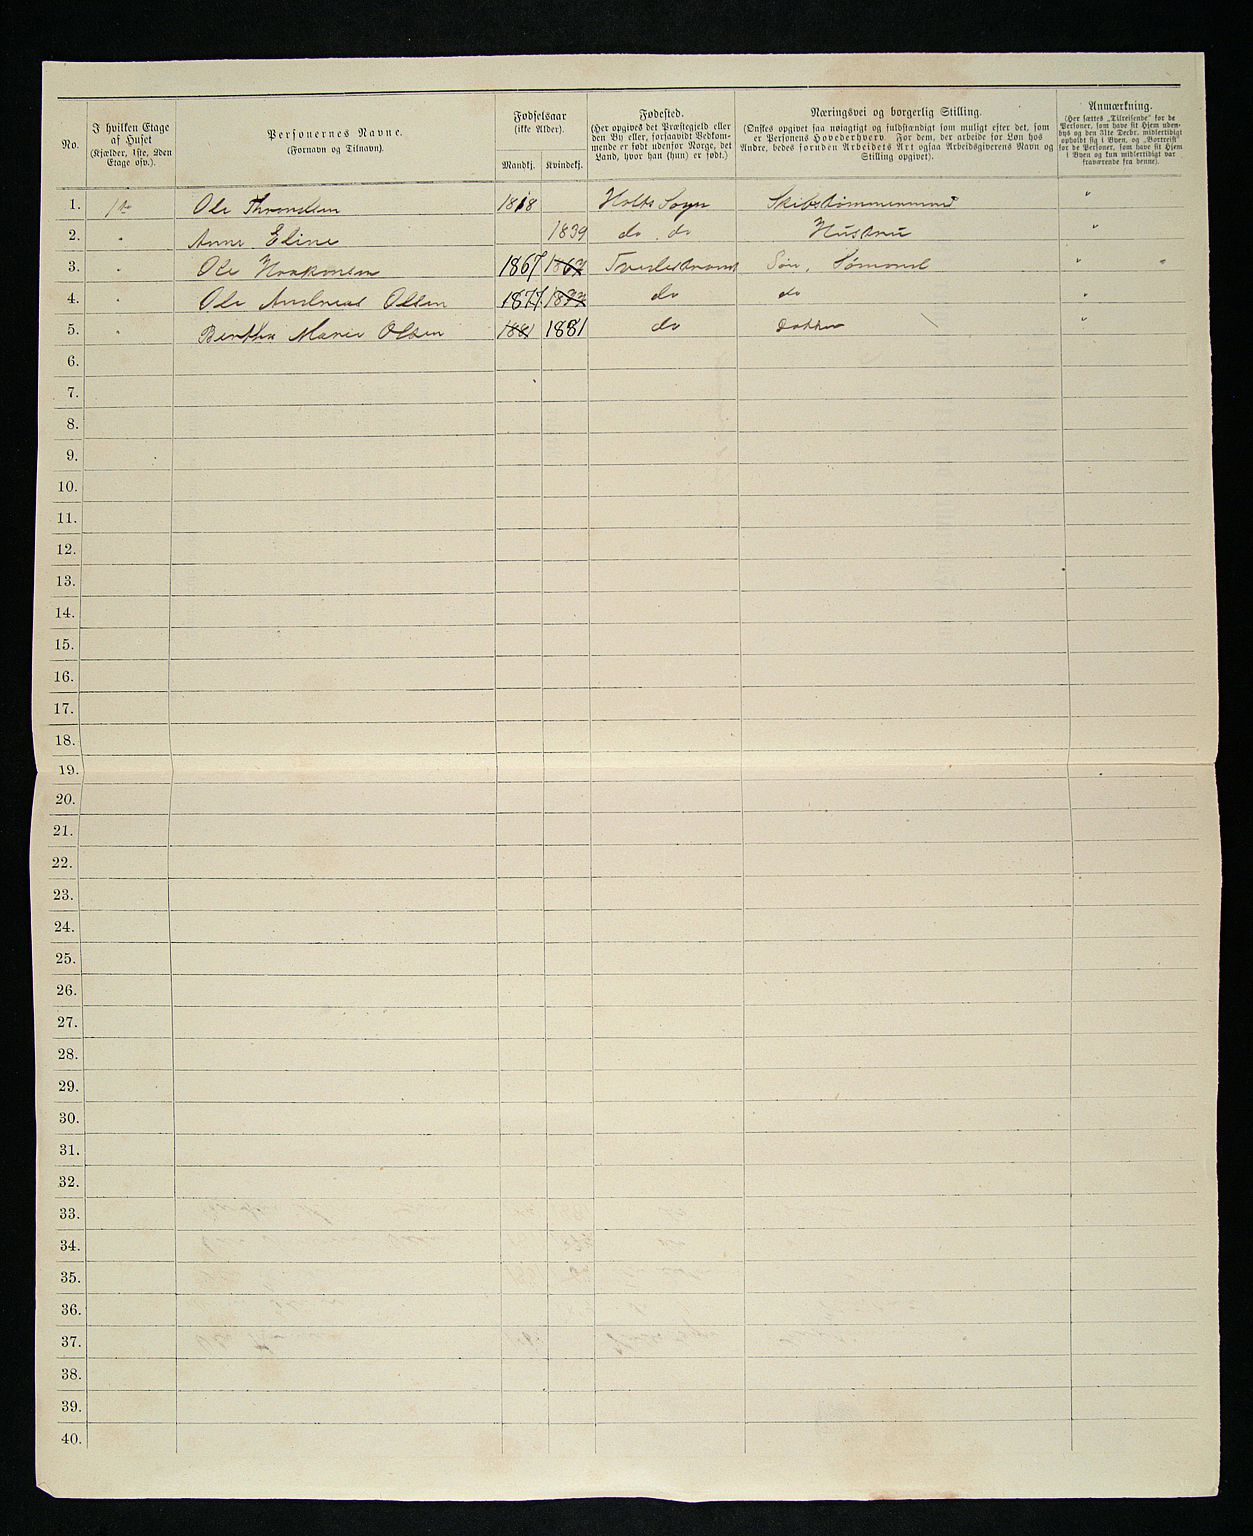 No.
I hvilken Etage af Huset
(Kjælder, 1ste, 2den Etage osv.).
Personernes Navne.
(Fornavn og Tilnavn).
Fødselsaar
(ikke Alder).
Mandkj. Kvindekj.
Fødested.
(Her opgives det Præstegjeld eller
den By eller, forsaavidt Vedkom-
mende er født udenfor Norge, det
Land, hvor han (hun) er født.)
Næringsvei og borgerlig Stilling.
(Ønskes opgivet saa nøiagtigt og fuldstændigt som muligt efter det, som
er Personens Hovederhverv. For dem, der arbeide for Løn hos
Andre, bedes foruden Arbeidets Art ogsaa Arbeidsgiverens Navn og
Stilling opgivet).
Anmærkning.
(Her sættes „Tilreisende“ for de
Personer, som have sit Hjem uden-
bys og den 31te Decbr. midlertidigt
opholdt sig i Byen, og „Bortreist“
for de Personer, som have sit Hjem
i Byen og kun midlertidigt var
fraværende fra denne).
1. 1ste Ole Throndsen 1818 Holts Sogn Skibstømmermand "
2. " Anne Eline 1839 do do Hustru "
3. " Ole Haakonsen 1867 1867 Tvedestrand Søn, Sømand " "
4. " Ole Andreas Olsen 1877 1877 do do "
5. " Berthe Marie Olsen 1881 1881 do datter "
6.
7.
8.
9.
10.
11.
12.
13.
14.
15.
16.
17.
18.
19.
20.
21.
22.
23.
24.
25.
26.
27.
28.
29.
30.
31.
32.
33.
34.
35.
36.
37.
38.
39.
40.